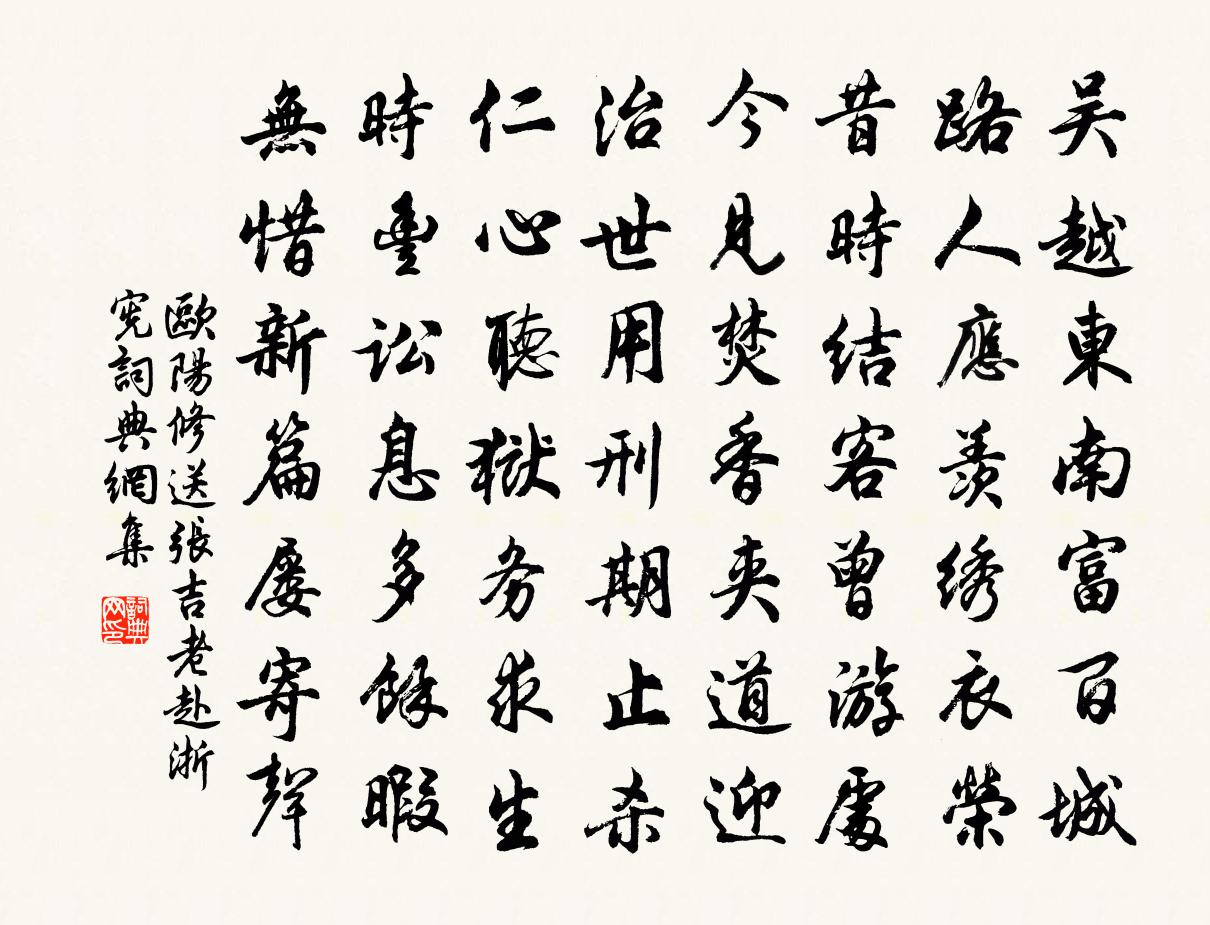 吴越東南富百城
路人應羨绣衣榮
昔時結客曾游處
今見焚香夹道迎
治世用刑期止杀
仁心聽獄务求生
時豐訟息多餘暇
無惜新篇屡寄聲
歐陽修送張吉老赴浙
宪詞典網集
詞典
网印